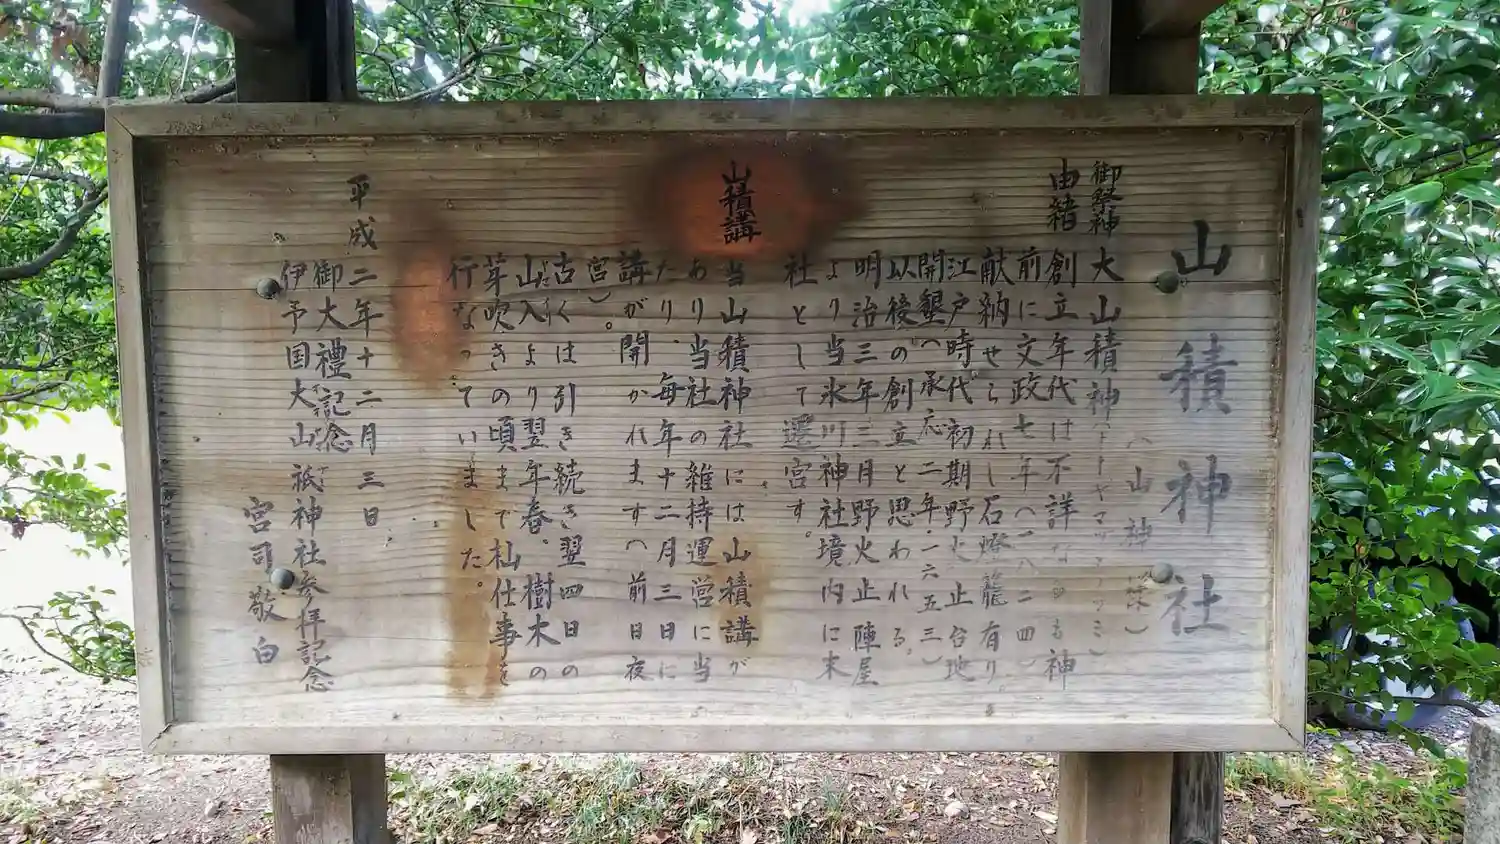 山積神社
(山神様)
御祭神 大山積神(オオヤマツミノカミ)
由緒 創立年代は不詳なるも神
前に文政七年(一八二四)
献納せられし石燈籠有り。
江戸時代初期野火止台地
開墾(承応二年・一六五三)
以後の創立と思われる。
明治三年三月野火止陣屋
より当氷川神社境内に末
社として遷宮す。
山積講 当山積神社には山積講が
あり当社の維持運営に当
たり、毎年十二月三日に
講が開かれます(前日夜
宮)。
古くは引き続き翌四日の
山入より翌年春、樹木の
芽吹きの頃まで杣仕事を
行なっていました。
平成二年十二月三日
御大禮記念
伊予国大山祇神社参拝記念
宮司敬白